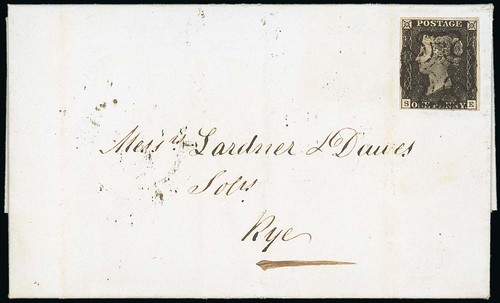 POSTAGE
S ONE PENNY E
Mess.rs Lardner & Dawes
Solrs
Rye